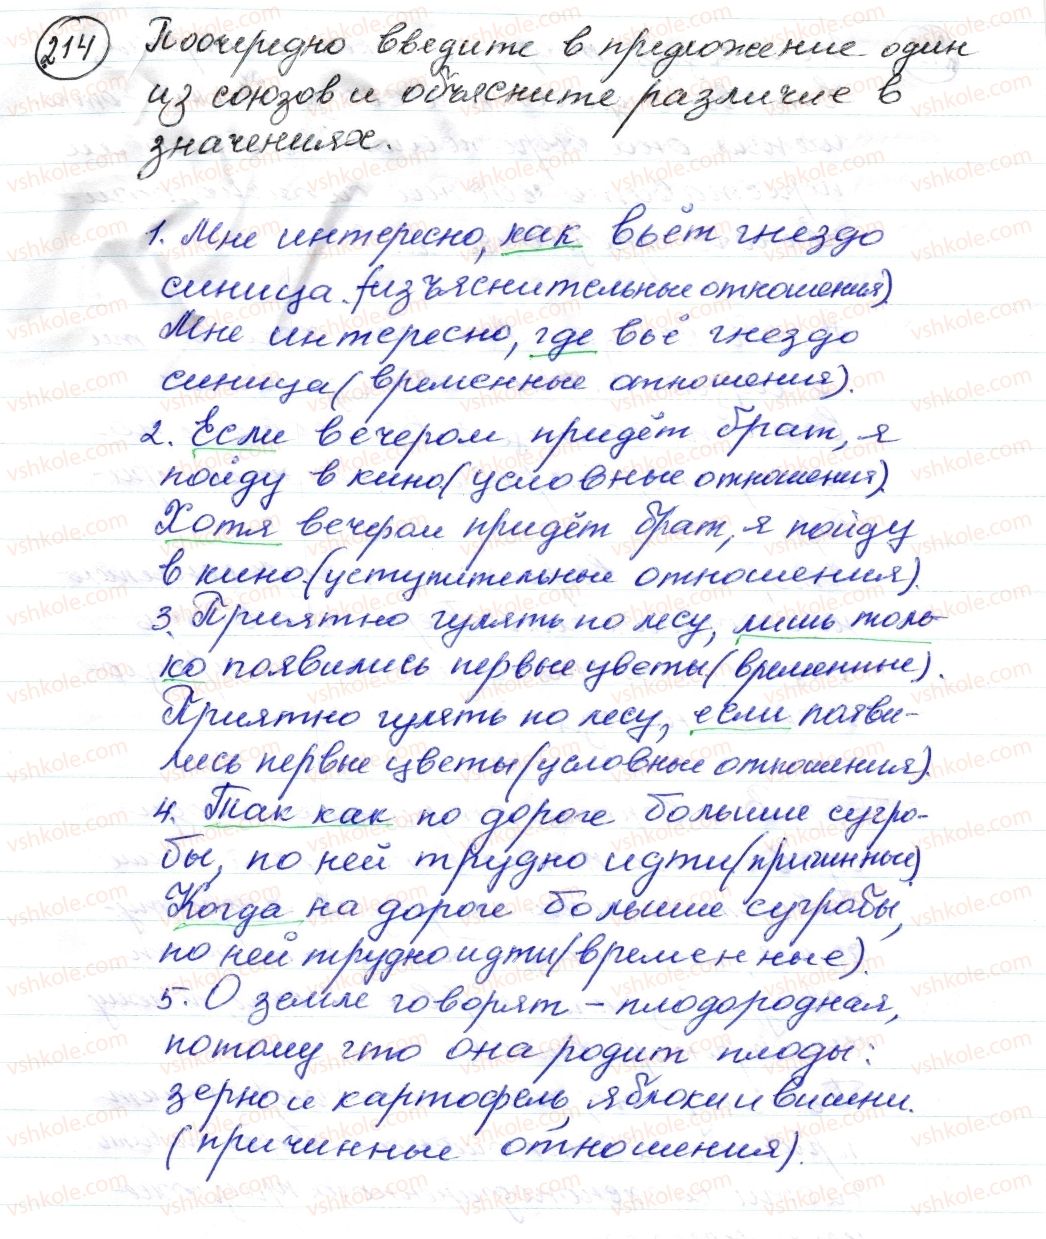 214 Поочередно введите в предложение один
из союзов и объясните различие в
значениях.
1. Мне интересно, как вьёт гнездо
синица. (изъяснительные отношения)
Мне интересно, где вьё гнездо
синица (временные отношения).
2. Если вечером придёт брат, я
пойду в кино (условные отношения).
Хотя вечером придёт брат, я пойду
в кино. (уступительные отношения).
3. Приятно гулять по лесу, лишь толь-
ко появились первые цветы (временные).
Приятно гулять по лесу, если появи-
лись первые цветы (условные отношения).
4. Так как по дороге большие сугро-
бы, по ней трудно идти (причинные)
Когда на дороге большие сугробы,
по ней трудно идти (временные).
5. О земле говорят – плодородная,
потому что она родит плоды:
зерно и картофель, яблоки и вишни.
(причинные отношения).
vshkole.com